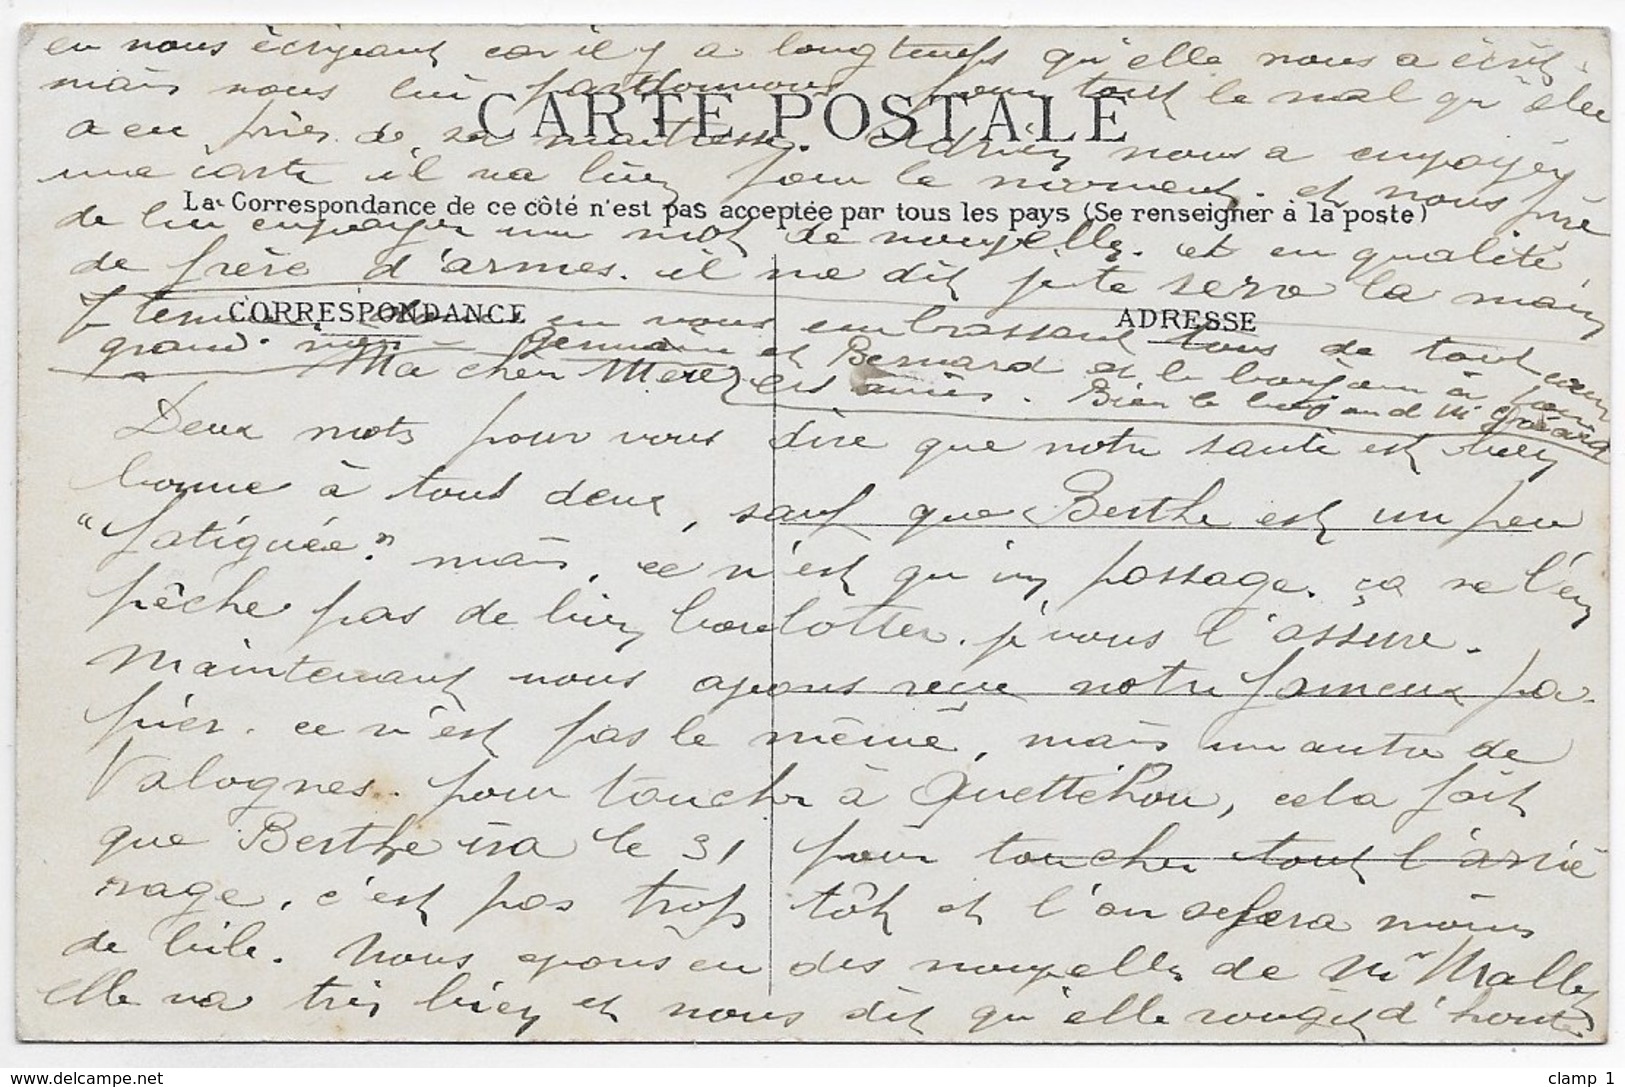 en nous écrivant car il y a longtemps qu'elle nous a écrit.
mais nous lui pardonnons pour tout le mal qu'elle
CARTE POSTALE
a eu près de sa maitresse. Adrien nous a envoyéz
une carte il va bien pour le moment. et nous prie
La Correspondance de ce côté n'est pas acceptée par tous les pays (Se renseigner à la poste)
de lui envoyer un mot de nouvelle. et en qualité
de frère d'armes. il me dit je te serre la main
CORRESPONDANCE
ADRESSE
Je termine en vous embrassant tous de tout cœur
grand Germaine et Bernard et le bonjour à
amies. Bien le bonjour
Ma cher Mere
Deux mots pour vous dire que notre santé est bien
bonne à tous deux, sauf que Berthe est un peu
"fatiguée" mais, ce n'est qu'un passage. ça ne l'em
pêche pas de bien boulotter. j'vous l'assure.
Maintenant nous avons reçu notre fameux pa-
pier. ce n'est pas le même, mais un autre de
Valognes. pour toucher à Quettehou, cela fait
que Berthe ira le 31 pour toucher tout l'arrié
rage, c'est pas trop tôt et l'on se fera moins
de bile. Nous avons eu des nouvelle de Mr Mallez
elle va très bien et nous dit qu'elle rougit d'honte
clamp 1